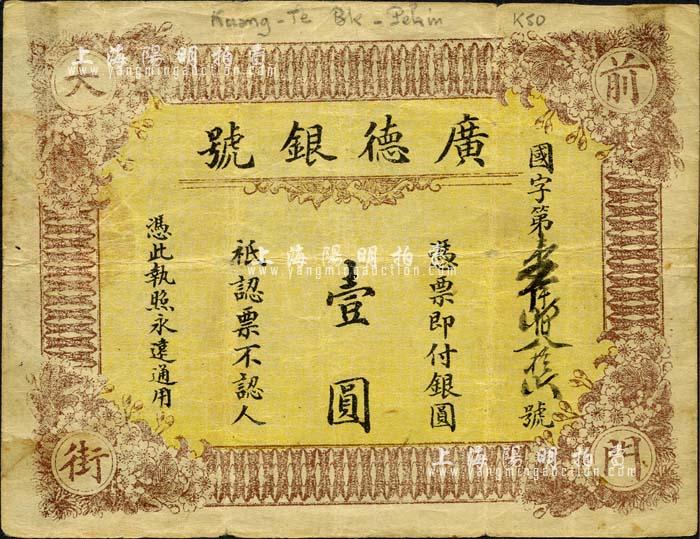 Kuang-Te Bk - Pekin K50
前門大街
廣德銀號
國字第壹仟肆百八拾八號
憑票即付銀圓
壹圓
祇認票不認人
憑此執照永遠通用
上海陽明拍賣
www.yangmingauction.com
上海陽明拍賣
www.yangmingauction.com
上海陽明拍賣
www.yangmingauction.com
上海陽明拍賣
www.yangmingauction.com